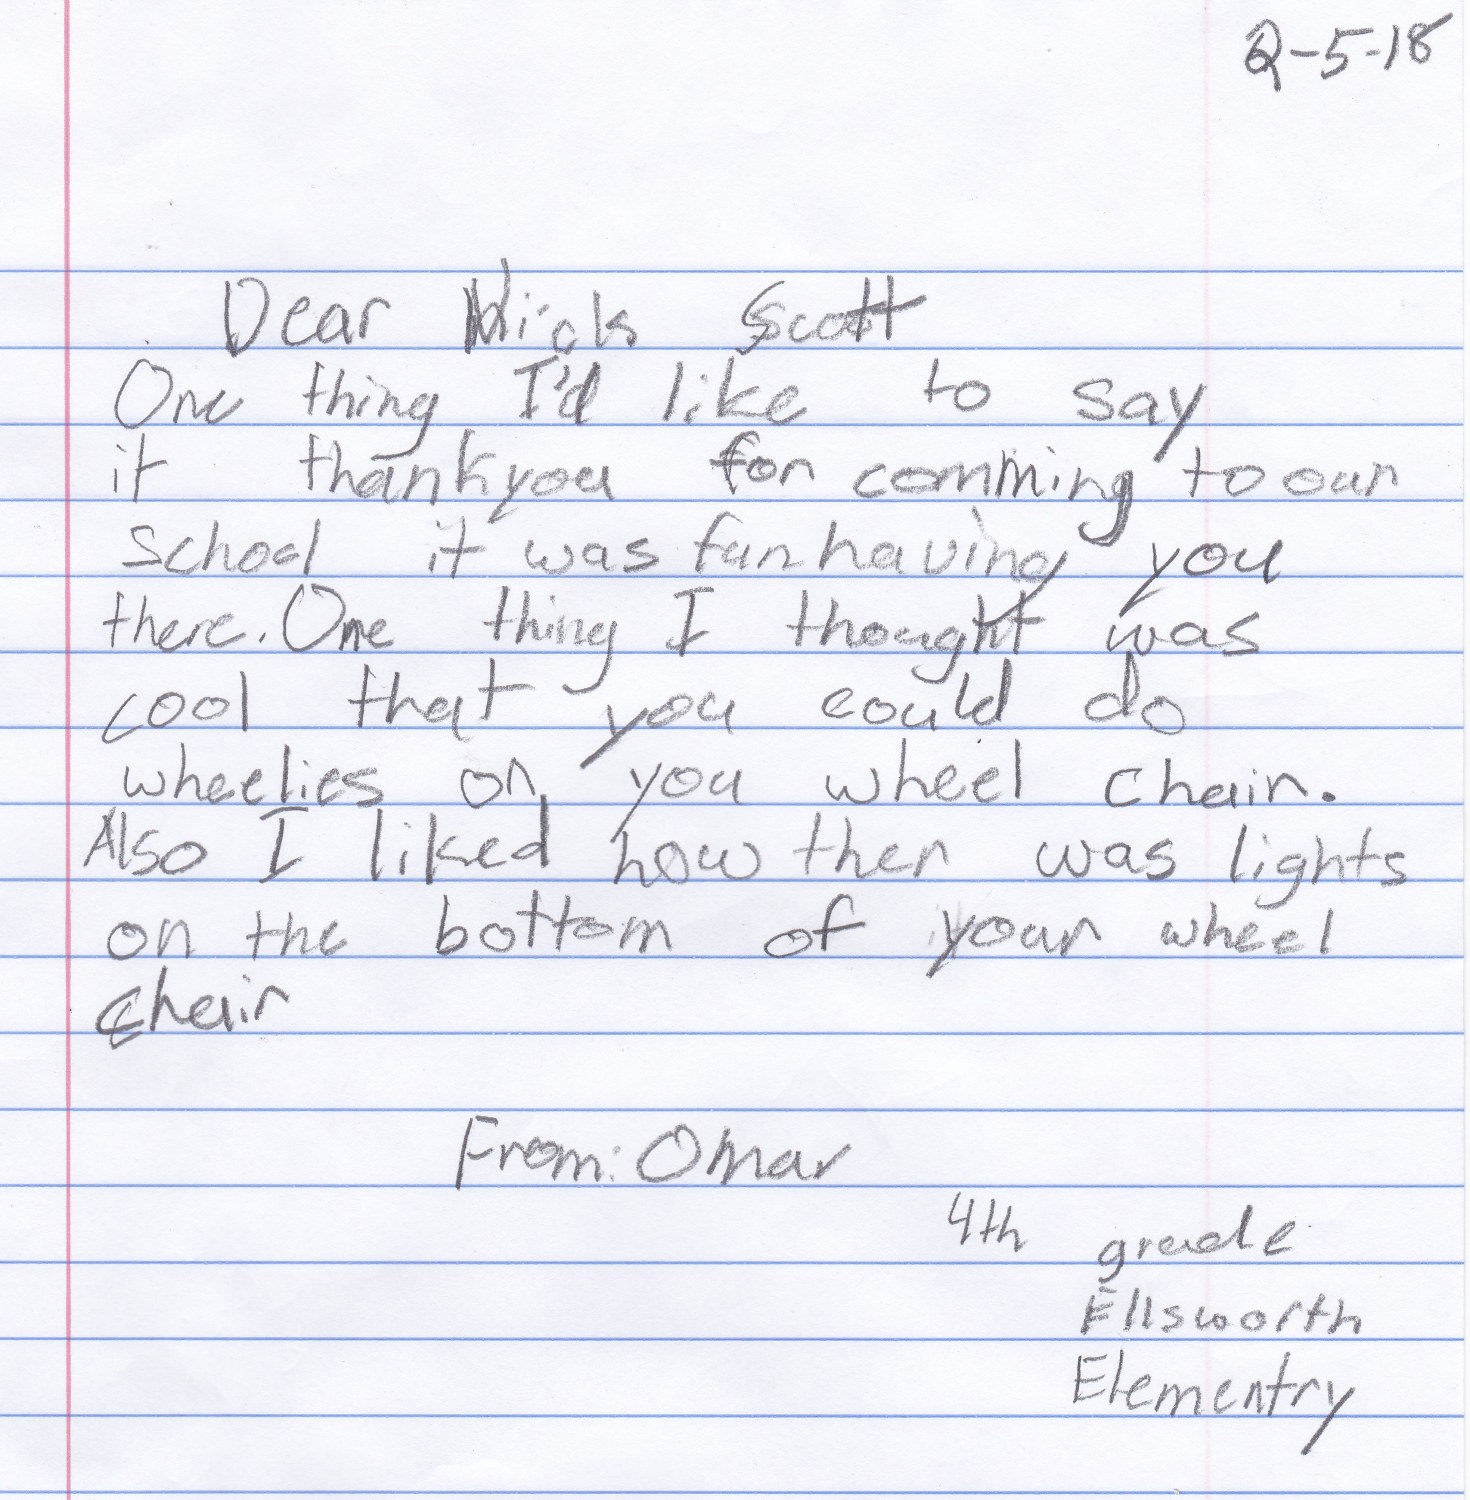 2-5-18
Dear Nick Scott
One thing I'd like to say
it thankyou for comming to our
school it was fun having you
there. One thing I thought was
cool that you could do
wheelies on you wheel chair.
Also I liked how ther was lights
on the bottom of your wheel
chair
From: Omar
4th grade
Ellsworth
Elementry